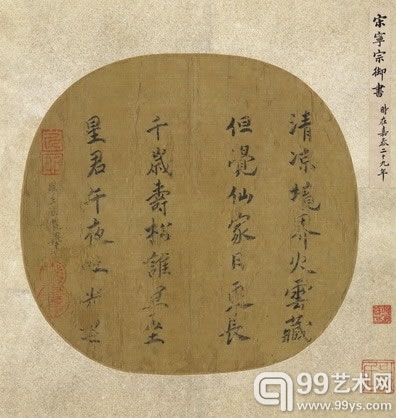 宋寧宗御書
清涼境界火雲藏
但覺仙家日更長
千歲壽松誰坐
星君午夜光
99艺术网
www.99ys.com